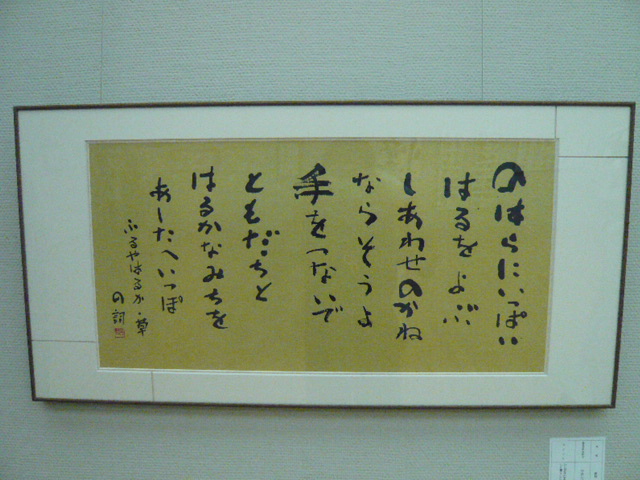 のはらにいっぱい
はるをよぶ
しあわせのかね
ならそうよ
手をつないで
ともだちと
はるかなみちを
あしたへいっぽ
ふるやはるか・草
の詞